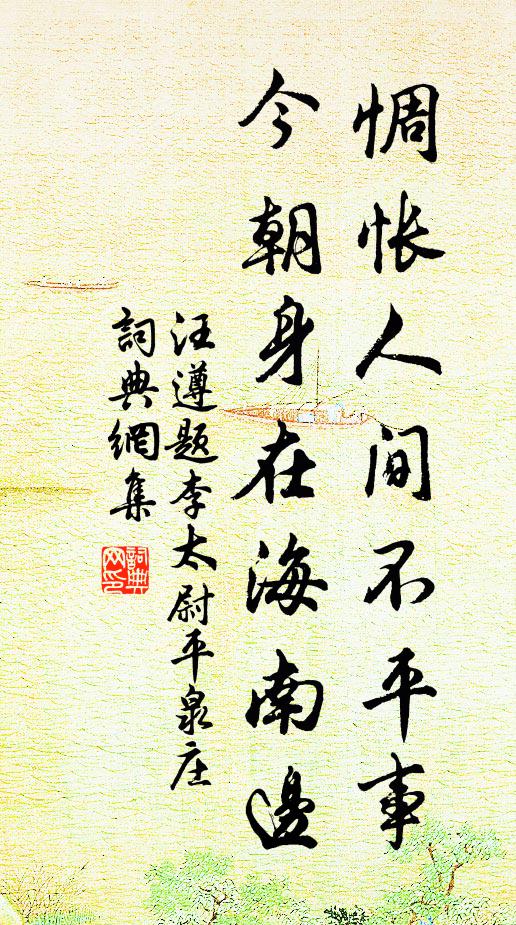 惆怅人间不平事
今朝身在海南邊
汪遵题李太尉平泉庄
詞典網集
詞典网印